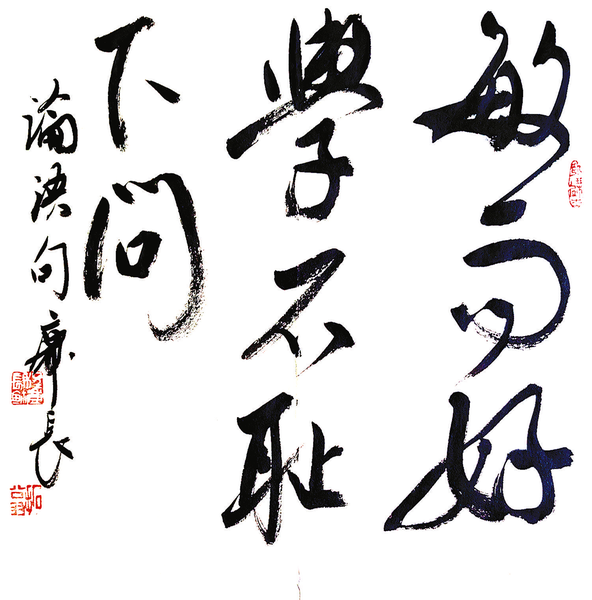 敏而好
學不恥
下問
論語句